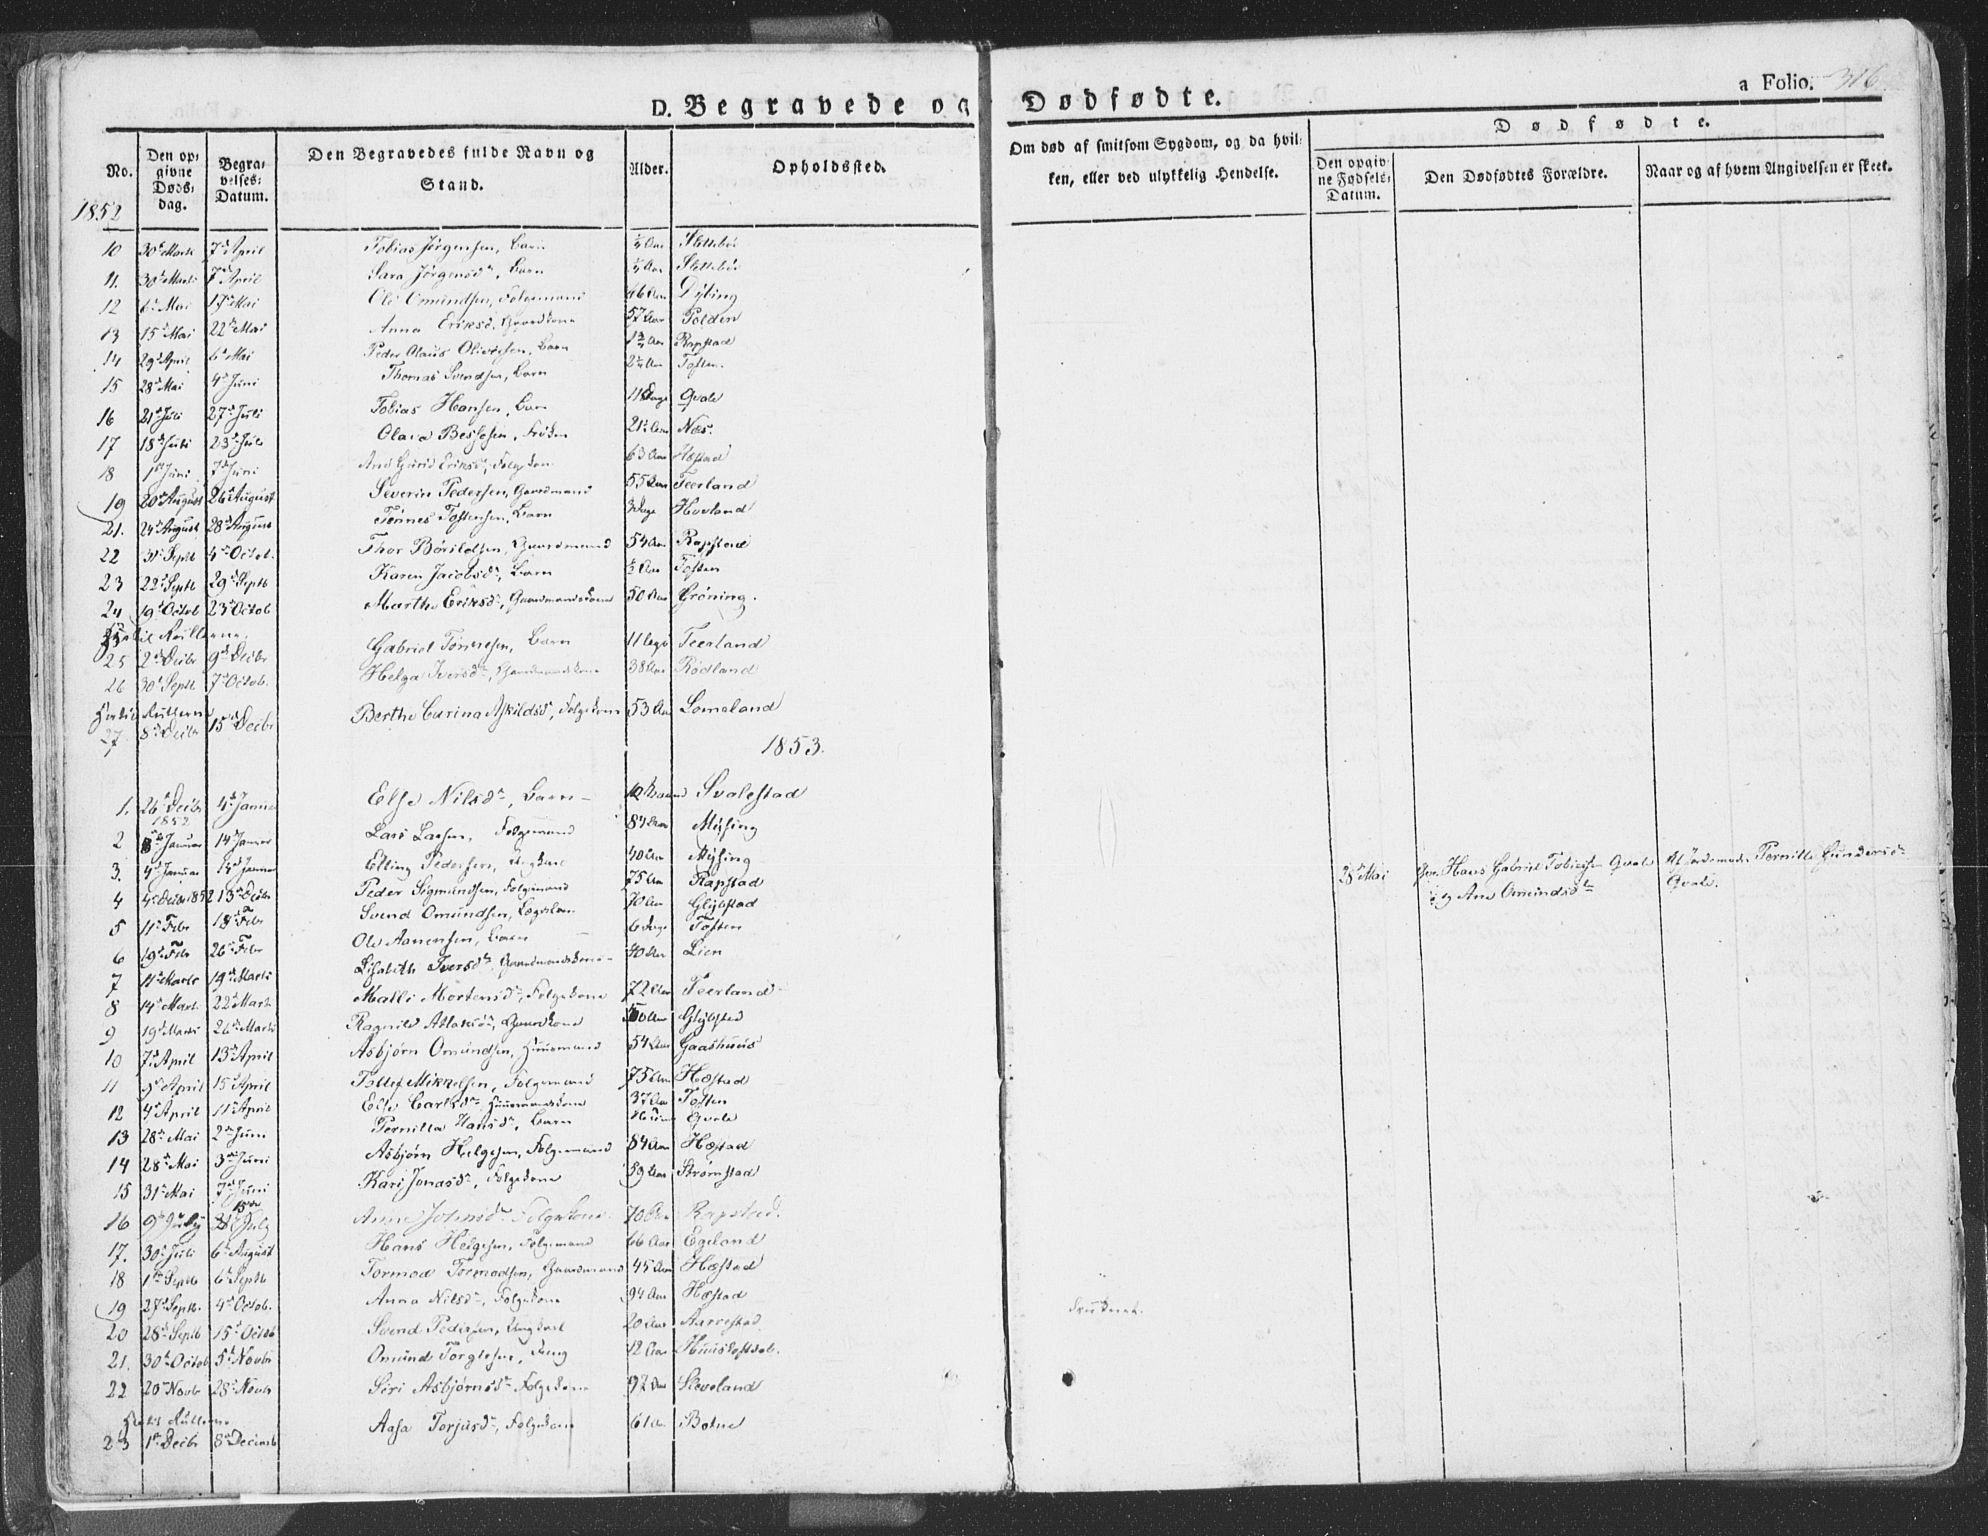 D. Begravede og Dødfødte.
a Folio. 316
No.
Den op-
givne
Døds-
dag.
Begra-
velses-
Datum.
Den Begravedes fulde Navn og
Stand.
Alder.
Opholdssted.
Om død af smitsom Sygdom, og da hvil-
ken, eller ved ulykkelig Hendelse.
Dødfødte.
Den opgiv-
ne Fødsels-
Datum.
Den Dødfødtes Forældre.
Naar og af hvem Angivelsen er skeet.
1852
10 30d Marts 7d April Tobias Jörgensen, Barn 1/4 Aar Slettebö
11. 30d Marts 7d April Sara Jörgensdr, Barn 1/4 Aar Slettebö
12 6d Mai 17d Mai Ole Omundsen, Folgemand 46 Aar Dybing
13 15d Mai 22d Mai Anna Eriksdr, Gaardkone 57 Aar Polden
14 29d April 6d Mai Peder Olaus Olivesen, Barn 1 3/4 Aar Rapstad
15 28d Mai 4d Juni Thomas Svendsen, Barn 2 1/2 Aar Toften.
16 21d Juli 27d Juli Tobias Hansen, Barn 11 Dage Qvale
17 18d Juli 23d Juli Olava Bessesen, Fröken 21 Aar Næs.
18 1d Juni 7d Juni Ane Gurid Eriksdr, Folgekone 63 Aar Hæstad
19 20d August 26d August Severin Pedersen, Gaardmand 55 Aar Teerland
21. 24d August 28d August Tönnes Tostensen, Barn 3 Dage Hovland
22 31d Septb 4d Octob. Thor Börildsen, Gaardmand 54 Aar Rapstad
23 22d Septb 29d Septb Karen Jacobsdr, Barn 1/2 Aar Toften
24 19d Octob 23d Octob Marthe Eriksdr, Gaardmandskone 50 Aar Gröning.
25 2d Decbr 9d Decbr Gabriel Tönnesen, Barn 11 Dage Teerland
26 30d Septb 7d Octob. Helga Iversdr, Gaardmandskone 38 Aar Rödland
27 8d Decbr 15d Decbr Berthe Carina Askildsdr, Folgekone 53 Aar Lomeland
1853.
1. 26d Decbr 1852 4d Januar Else Nilsdr, Barn Svalestad
2 8d Januar 14 Januar Lars Larsen, Folgemand 84 Aar Mysing
3. 4d Januar Elling Pedersen, Ungkarl 40 Aar Mysing
4 4d Decbr 1852 13d Decbr Peder Sigmundsen, Folgemand 75 Aar Rapstad
5 11d Febr 18d Febr Svend Omundsen, 70 Aar Glypstad
6 19d Febr 26d Febr Ole Aanensen, Barn 6 Dage Toften
7 11d Marts 19d Marts Lisabeth Iversdr, Gaardmandskone 40 Aar Lien
8 14d Marts 22d Marts Malli Mortensdr, Folgekone 72 Aar Teerland
9 19d Marts 26d Marts Ragnild Atlaksdr, Gaardkone 50 Aar Glypstad
10 7d April 13d April Asbjørn Omundsen, Huusmand 54 Aar Gaashuus
11 9d April 15d April Tollef Mikkelsen, Folgemand 75 Aar Hæstad
12 4d April 11d April Else Carlsdr, Huusmandskone 37 Aar Toften
13 28d Mai 2d Juni Pernilla Hansdr, Barn Qvale
14 28d Mai 3d Juni Asbjørn Helgesen, Folgemand 84 Aar Hæstad
15 31d Mai 7d Juni Kari Jonasdr, Folgekone 59 Aar Strömstad
16 9d July July Anne Johnsdr Folgekone 70 Aar Rapstad.
17. 30d Juli 6d August Hans Helgesen, Folgemand 66 Aar Egeland
18 1d Septb 6d Septb Tormod Tormodsen, Gaardmand 45 Aar Hæstad
19 27d Septb. 4d Octob. Anna Nilsdr, Folgekone 94 Aar Hæstad
20 28d Septb 15d Octob Svend Pedersen, Ungkarl 20 Aar Aarrestad
21. 30d Octob 5d Novbr Omund Torgiesen, Dreng 12 Aar
22 20d Novb 28d Novbr Siri Asbjørnsdr Folgekone 92 Aar Sleveland
23 1d Decbr 8d Decemb Aasa Torjusdr, Folgekone 61 Aar Botne
28d Mai Hans Gabriel Tobiassen Qvale
og Ane Omundsdr
Af Jordemoder Pernille Gundersdr
Qvale.